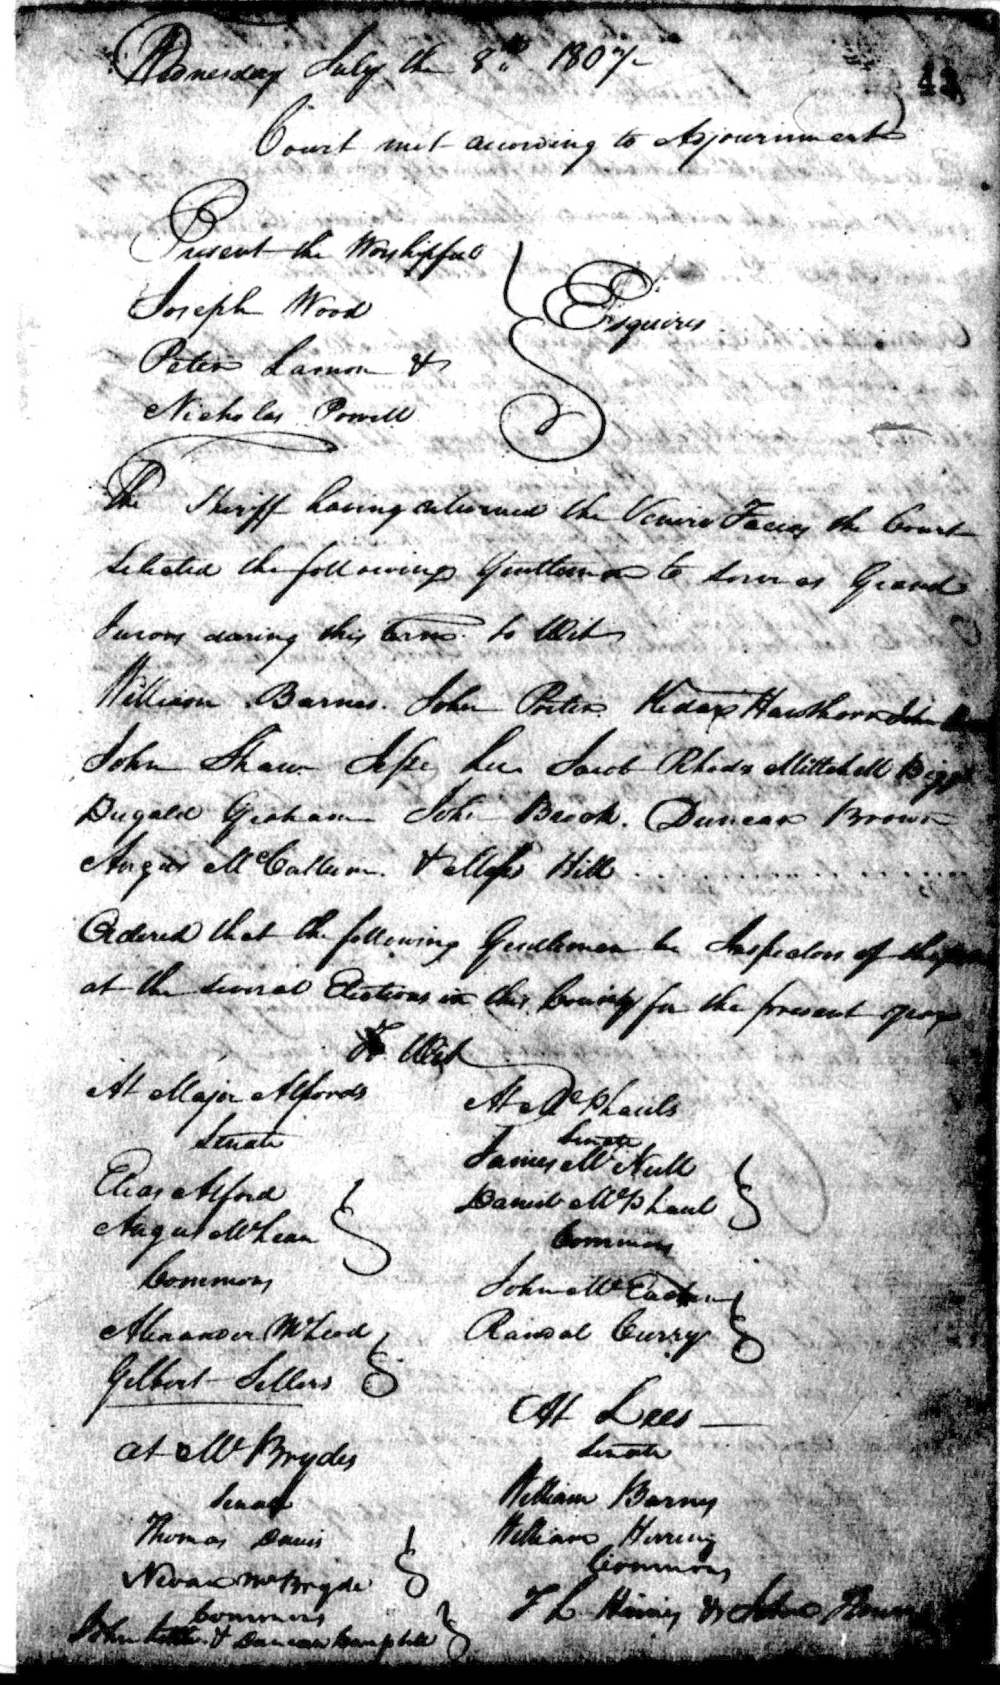 Wednesday July the 8th 1807
43
Court met according to Adjournment
Present the Worshipful
Joseph Wood
Peter Lamon &
Nicholas Powell
Esquires
The Sheriff having returned the Venire Facias the Court
Selected the following Gentlemen to serve as Grand
Jurors during this term to Wit
William Barnes John Porter Kedar Hawthorn John
John Shaw Jesse Lee Jacob Rhods Mittchell Biggs
Dugald Graham John Brook Duncan Brown
Angus McCallum & Moses Hill
Ordered that the following Gentlemen be Inspectors of the
at the several Elections in this County for the present year
To Wit
At Major Alfords
Senate
Elias Alford
Angus McLean
Commons
Alexander McLeod
Gilbert Sellers
at McBrydes
Senate
Thomas Davis
Nevan McBryde
Commons
John & Duncan Campbell
At McPhauls
Senate
James McNeill
Daniel McPhaul
Commons
John McEachern
Randal Curry
At Lees
Senate
William Barnes
William Herring
Commons
& John